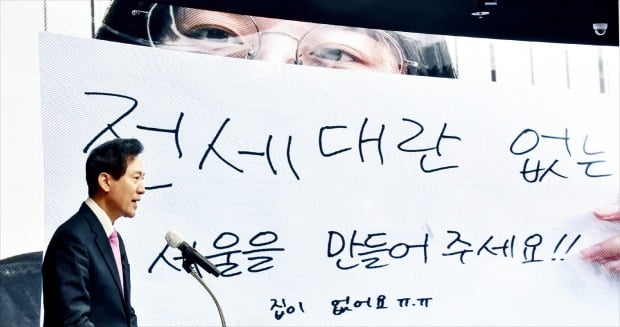 전세대란 없는
서울을 만들어 주세요!!
집이 없어요 ㅠ.ㅠ